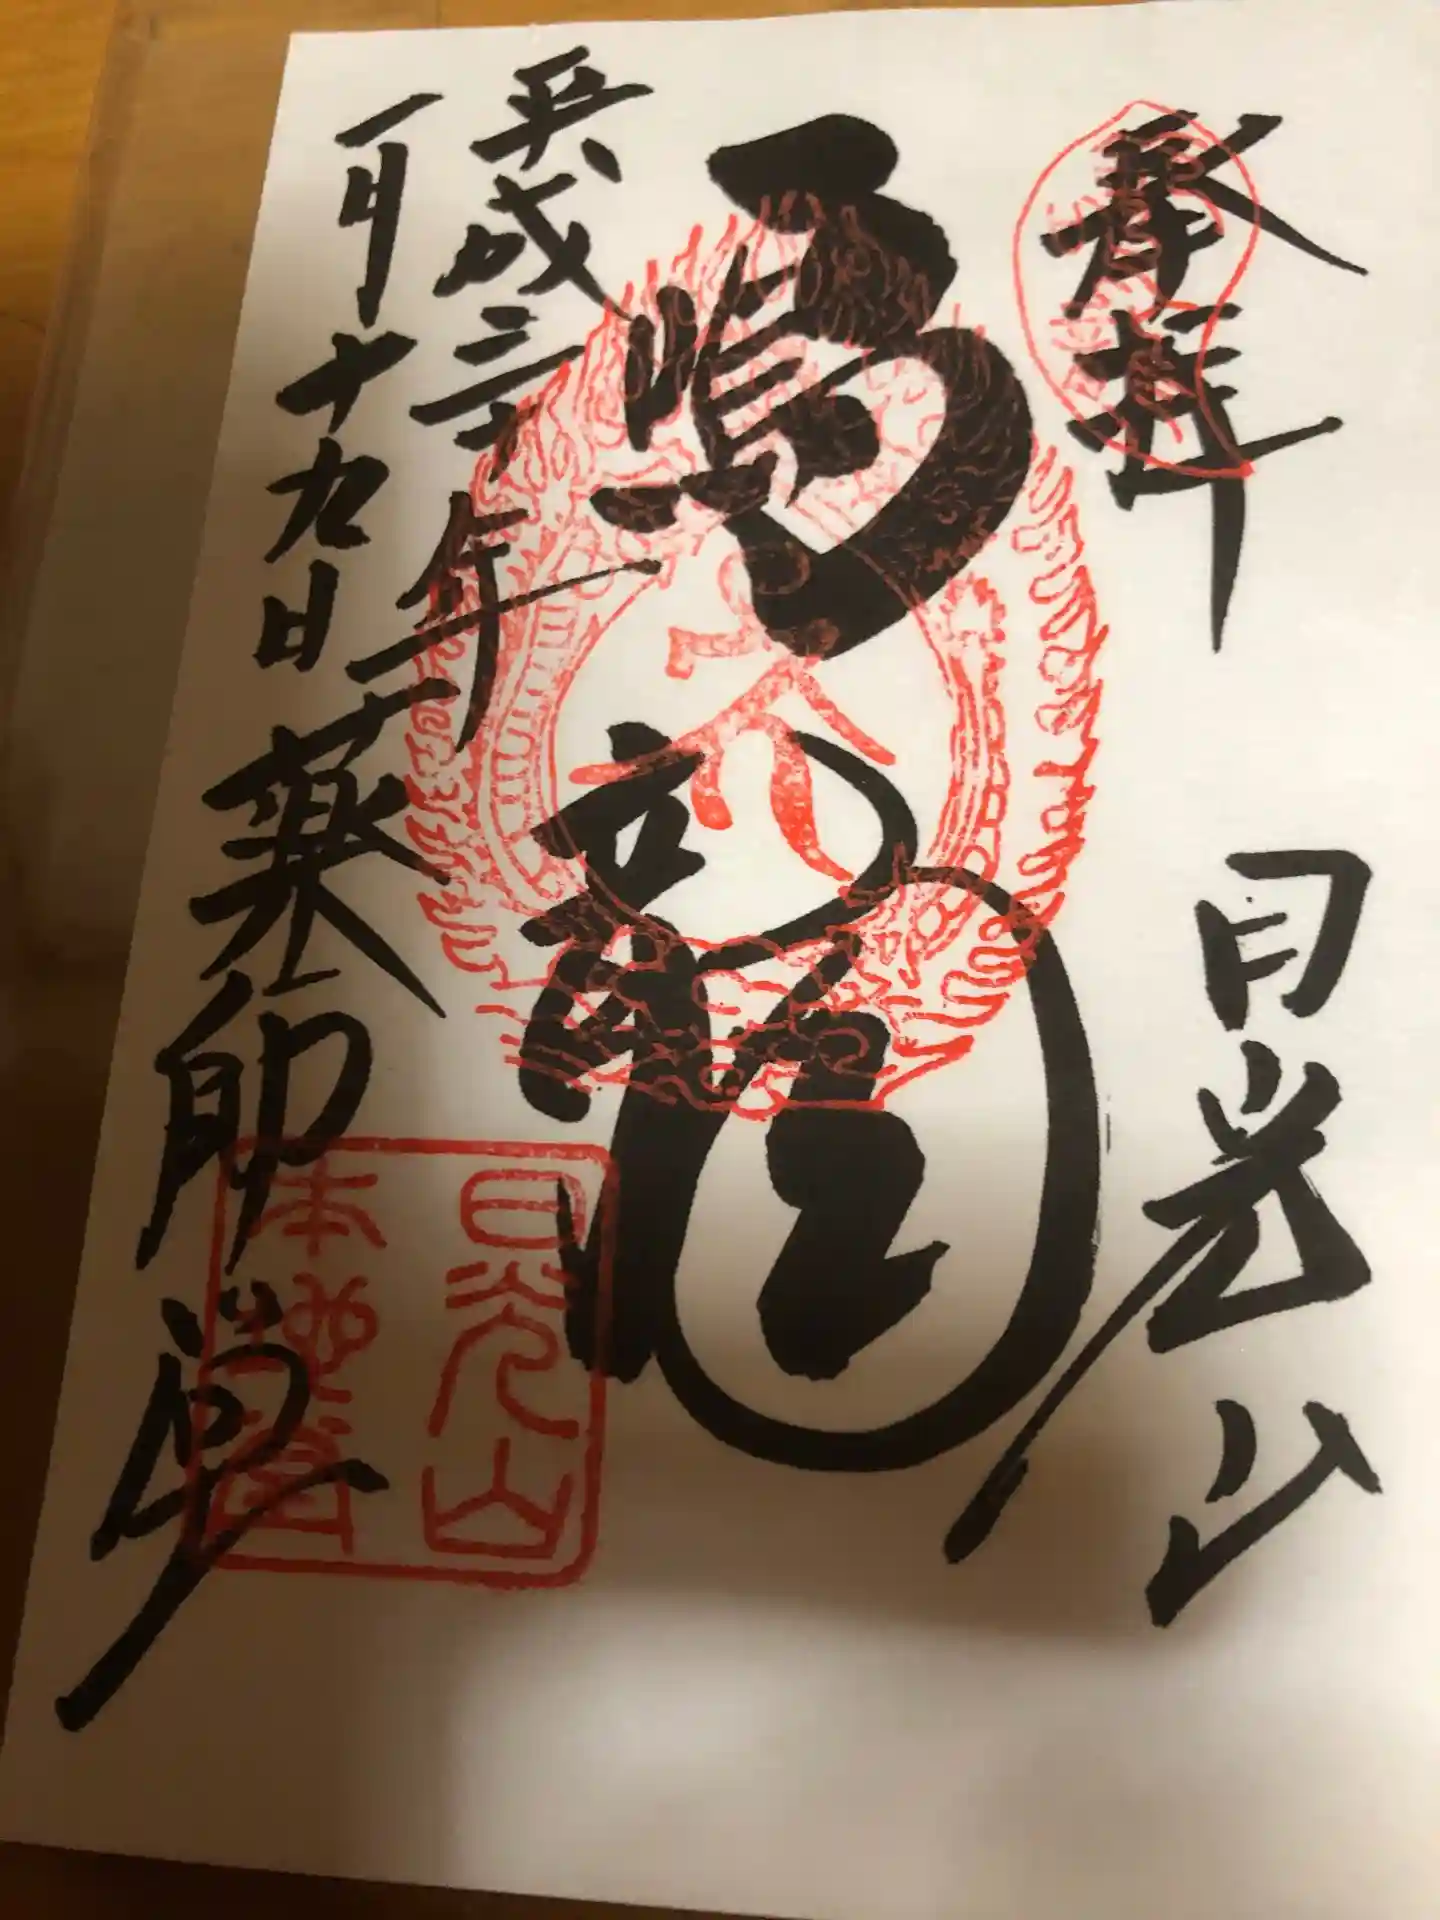 奉拝
日光山
鳴龍
平成三十年
一月十九日
薬師堂
日光山
本地堂